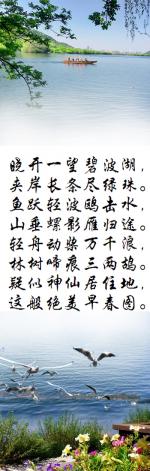 晓开一望碧波湖，
夹岸长条尽绿珠。
鱼跃轻波鸥击水，
山垂螺影雁归途。
轻舟动柴万千浪，
林树啼痕三两鸪。
疑似神仙居住地，
这般绝美早春图。